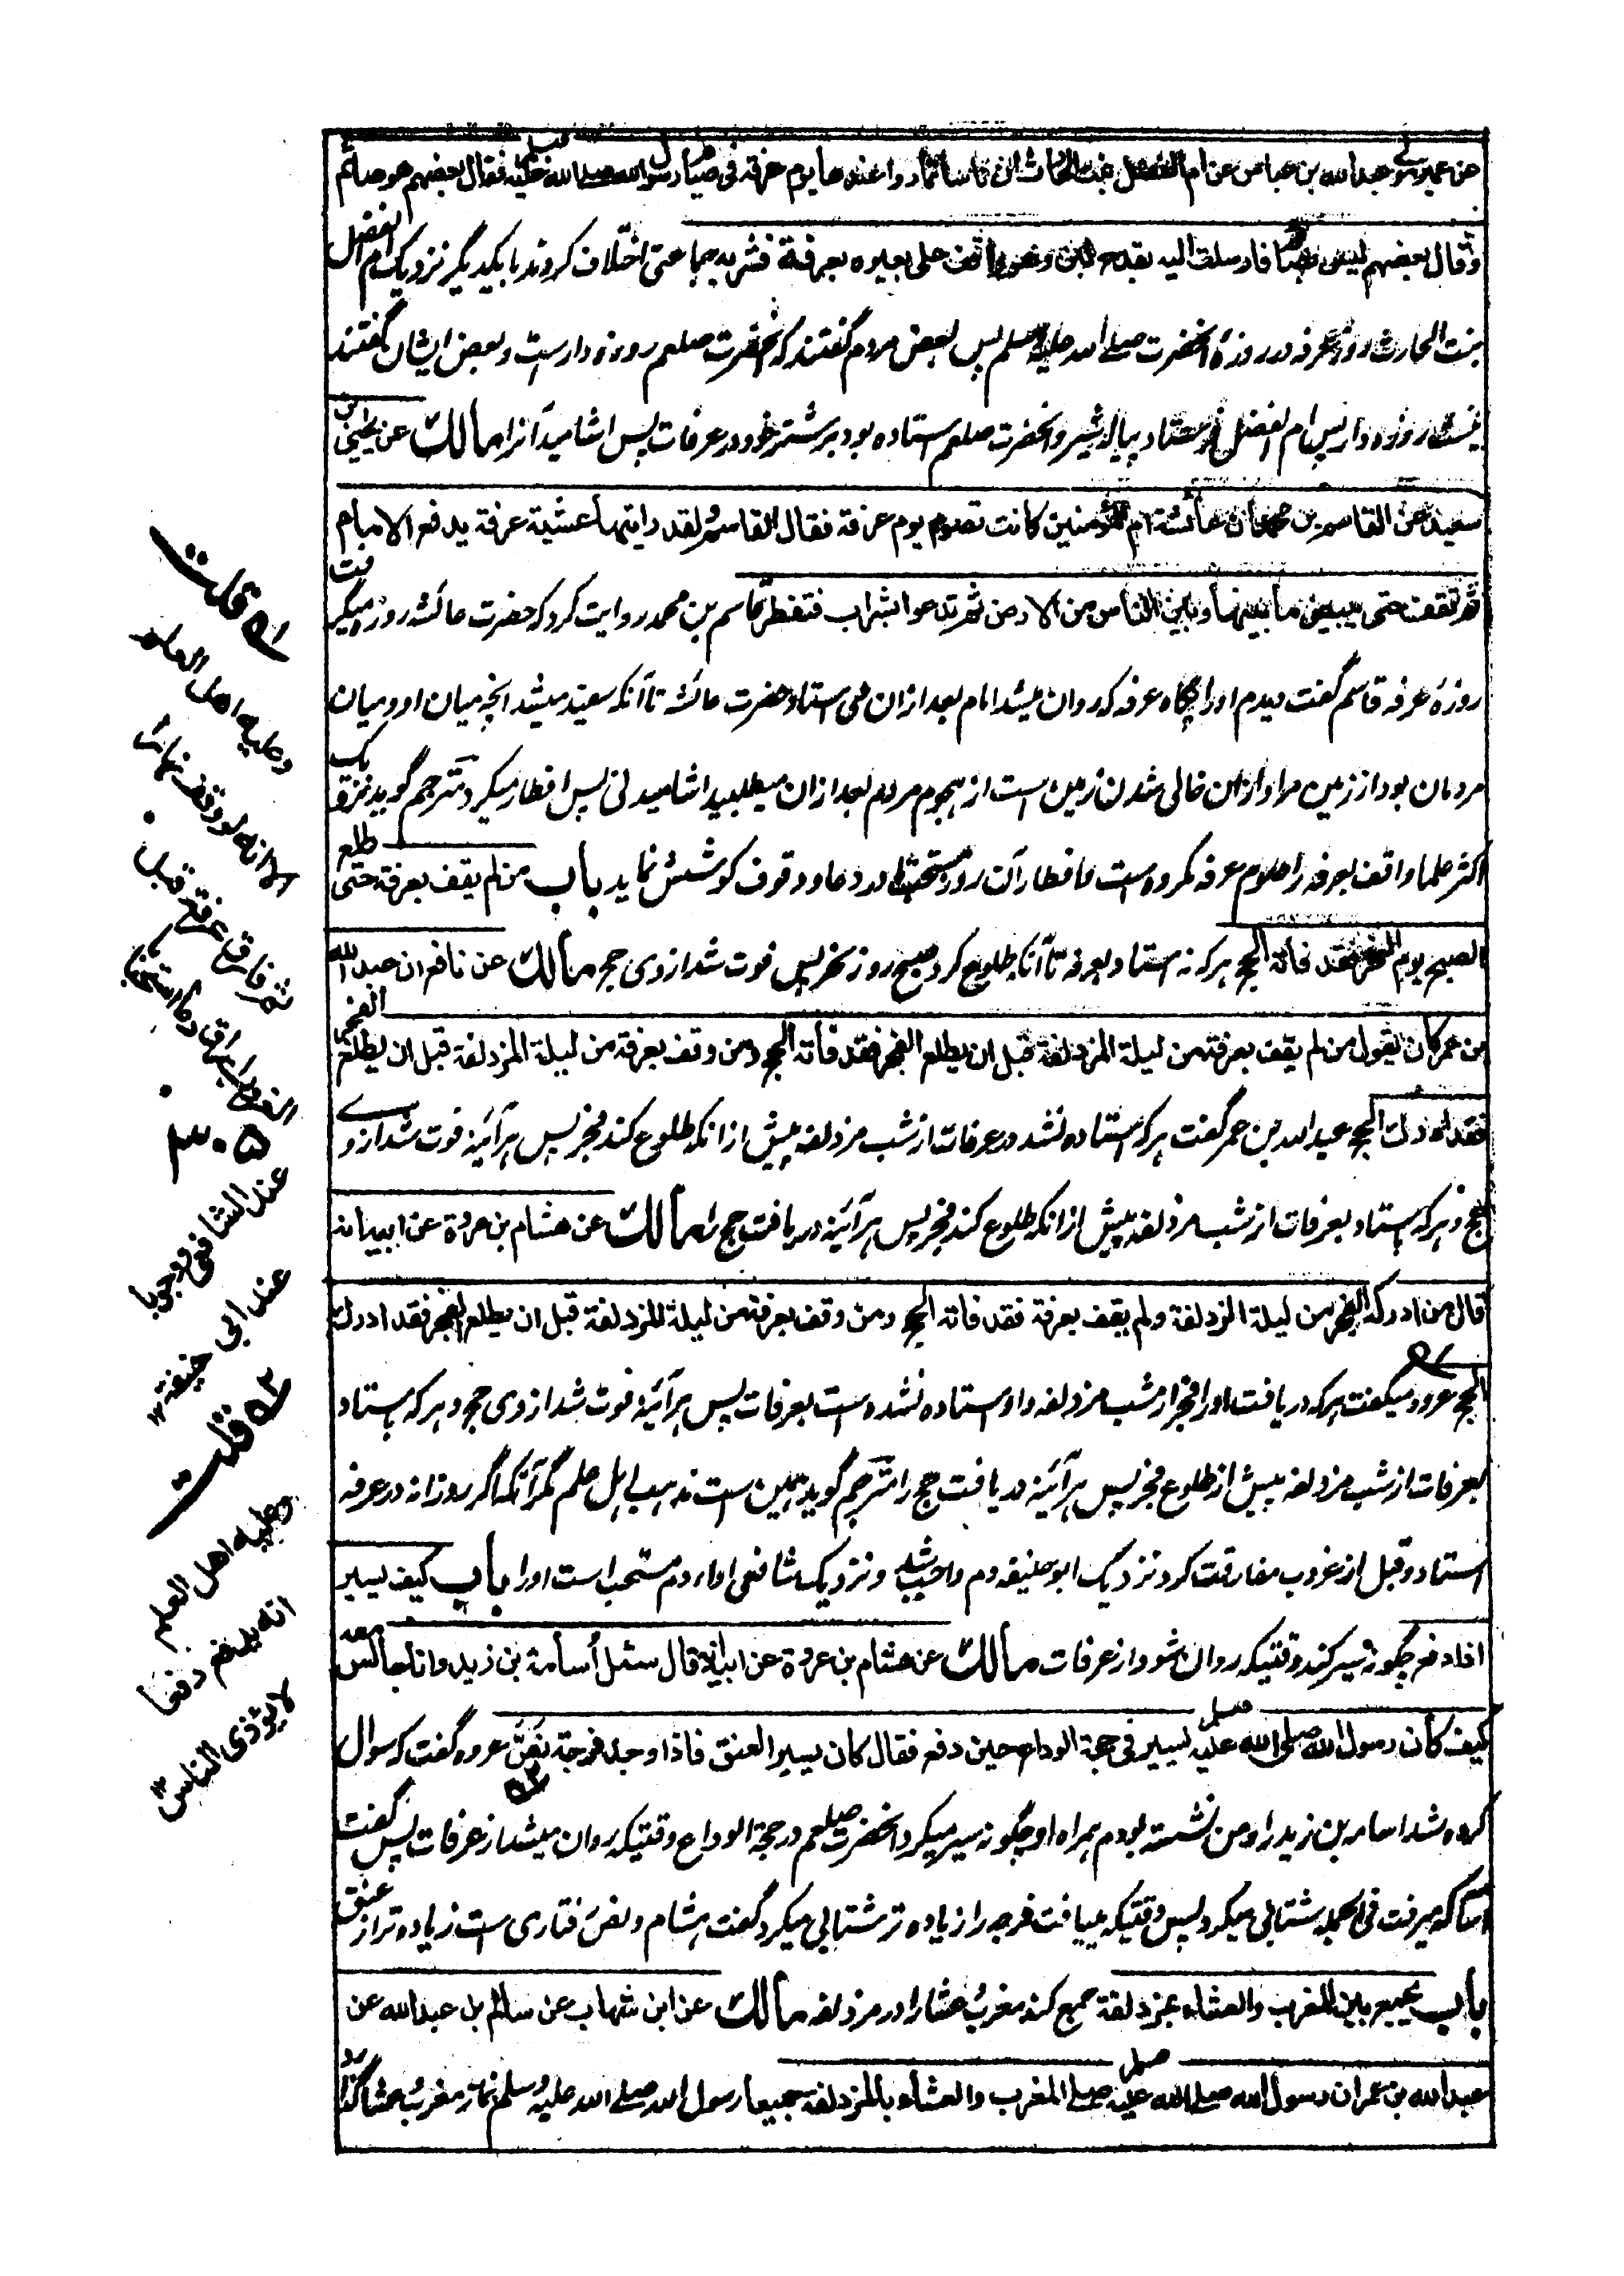 عن عمير مولى عبدالله بن عباس عن ام الفضل بنت الحارث ان ناسا تماروا عندها يوم عرفة فى صيام رسول الله صلى الله عليه وسلم فقال بعضهم هو صائم
وقال بعضهم ليس بصائم فارسلت اليه بقدح لبن وهو واقف على بعيره بعرفة فشربه جماعتى اختلاف كردند بايكديگر نزديك ام الفضل
بنت الحارث روز عرفه در روزهٔ آنحضرت صلى الله عليه وسلم پس بعض مردم گفتند كه آنحضرت صلعم روزه دارست وبعض ايشان گفتند
نيست روزه دار پس ام الفضل فرستاد پياله شير وآنحضرت صلعم استاده بود بر شتر خود در عرفات پس اشاميد آنرا مالك عن يحيى بن
سعيد عن القاسم بن محمد ان عائشة ام المؤمنين كانت تصوم يوم عرفة فقال القاسم ولقد رايتها عشية عرفة يدفع الامام
ثم تقف حتى يبيض ما بينها وبين الناس من الارض ثم تدعوا بشراب فتفطر قاسم بن محمد روايت كرد كه حضرت عائشه روزه ميگرفت
روزهٔ عرفه قاسم گفت ديدم اورا پگاه عرفه كه روان ميشد امام بعد ازان مى استاد حضرت عائشه تا آنكه سفيد ميشد انچه ميان او وميان
مردمان بود از زمين مراد ازان خالى شدن زمين است از هجوم مردم بعد ازان ميطلبيد اشاميدنى پس افطار ميكرد مترجم گويد نزديك
اكثر علما واقف بعرفه را صوم عرفه مكروه است وافطار آن روز مستحب تا در دعا ووقوف كوشش نمايد باب من لم يقف بعرفة حتى طلع
الصبح يوم النحر فقد فاته الحج هر كه نه استاد بعرفه تا آنكه طلوع كرد صبح روز نحر پس فوت شد ازوى حج مالك عن نافع ان عبد الله
بن عمر كان يقول من لم يقف بعرفة من ليلة المزدلفة قبل ان يطلع الفجر فقد فاته الحج ومن وقف بعرفة من ليلة المزدلفة قبل ان يطلع الفجر
فقد ادرك الحج عبد الله بن عمر گفت هر كه استاده نشد در عرفات از شب مزدلفه پيش ازانكه طلوع كند فجر پس هرآئينه فوت شد ازوے
حج وهر كه استاد بعرفات از شب مزدلفه پيش ازانكه طلوع كند فجر پس هرآئينه دريافت حج را مالك عن هشام بن عروة عن ابيه انه
قال من ادركه الفجر من ليلة المزدلفة ولم يقف بعرفة فقد فاته الحج ومن وقف بعرفة من ليلة المزدلفة قبل ان يطلع الفجر فقد ادرك
الحج عروه ميگفت هر كه دريافت اورا فجر از شب مزدلفه واو استاده نشده است بعرفات پس هرآئينه فوت شد ازوى حج وهر كه استاد
بعرفات از شب مزدلفه پيش از طلوع فجر پس هرآئينه دريافت حج را مترجم گويد همين است مذهب اهل علم مگر آنكه اگر روزانه در عرفه
استاد وقبل از غروب مفارقت كرد نزديك ابوحنيفه دم واجب شد ونزديك شافعى اداء دم مستحب است اورا باب كيف يسير
اذا دفع چگونه سير كند وقتيكه روان شود از عرفات مالك عن هشام بن عروة عن ابيه انه قال سئل أسامة بن زيد وانا جالس معه
كيف كان رسول الله صلى الله عليه وسلم يسير فى حجة الوداع حين دفع فقال كان يسير العنق فاذا وجد فرجة نص عروه گفت كه سوال
كرده شد اسامه بن زيد را ومن نشسته بودم همراه او چگونه سير ميكرد آنحضرت صلعم در حجة الوداع وقتيكه روان ميشد از عرفات پس گفت
اسامه كه ميرفت فى الجمله شتابى ميكرد پس وقتيكه مييافت فرجه را زياده تر شتابى ميكرد گفت هشام ونص رفتارى ست زياده تر از عنق
باب يجمع بين المغرب والعشاء بمزدلفة جمع كند مغرب وعشا را در مزدلفه مالك عن ابن شهاب عن سالم بن عبدالله عن
عبدالله بن عمر ان رسول الله صلى الله عليه وسلم صلى المغرب والعشاء بالمزدلفة جميعا رسول الله صلى الله عليه وسلم نماز مغرب وعشا گذارد
قلت
وعليه اهل العلم
الا انه لو وقف نهارا
ثم فارق عرفة قبل
الغروب اراق دما استحبابا
عند الشافعى ووجوبا
عند ابى حنيفة ١٢
قلت
وعليه اهل العلم
انه يدفع دفعا
لا يؤذى الناس ١٢